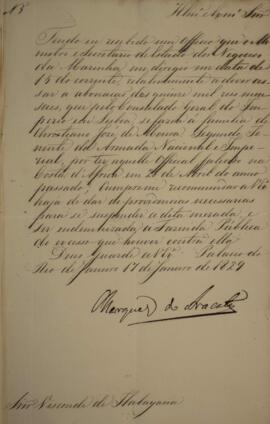 N.º 3
Illmo e Exmo Snr
Tendo eu recebido um Officio que o Mi
nistro e Secretario de Estado dos Negocios
da Marinha me dirigio em data de
15 do corrente, relativamente a dever ces
sar a abonação dos quinze mil reis men
saes, que pelo Consulado Geral do Impe
rio em Lisboa se fazia a familia de
Christiano José de Moura Segundo Te
nente da Armada Nacional e Impe
rial, por ter aquelle Official falecido na
Costa d'Africa em 28 de Abril do anno
passado; Cumpre-me recommendar a VEx.ª
haja de dar as providencias necessarias
para se suspender a dita mezada, e
ser indemnizada a Fazenda Publica
do excesso que houver contra ella
Deus guarde a VEx.ª Palacio do
Rio de Janeiro 17 de Janeiro de 1829
Marquez de Aracaty
Snr Visconde de Itabayana